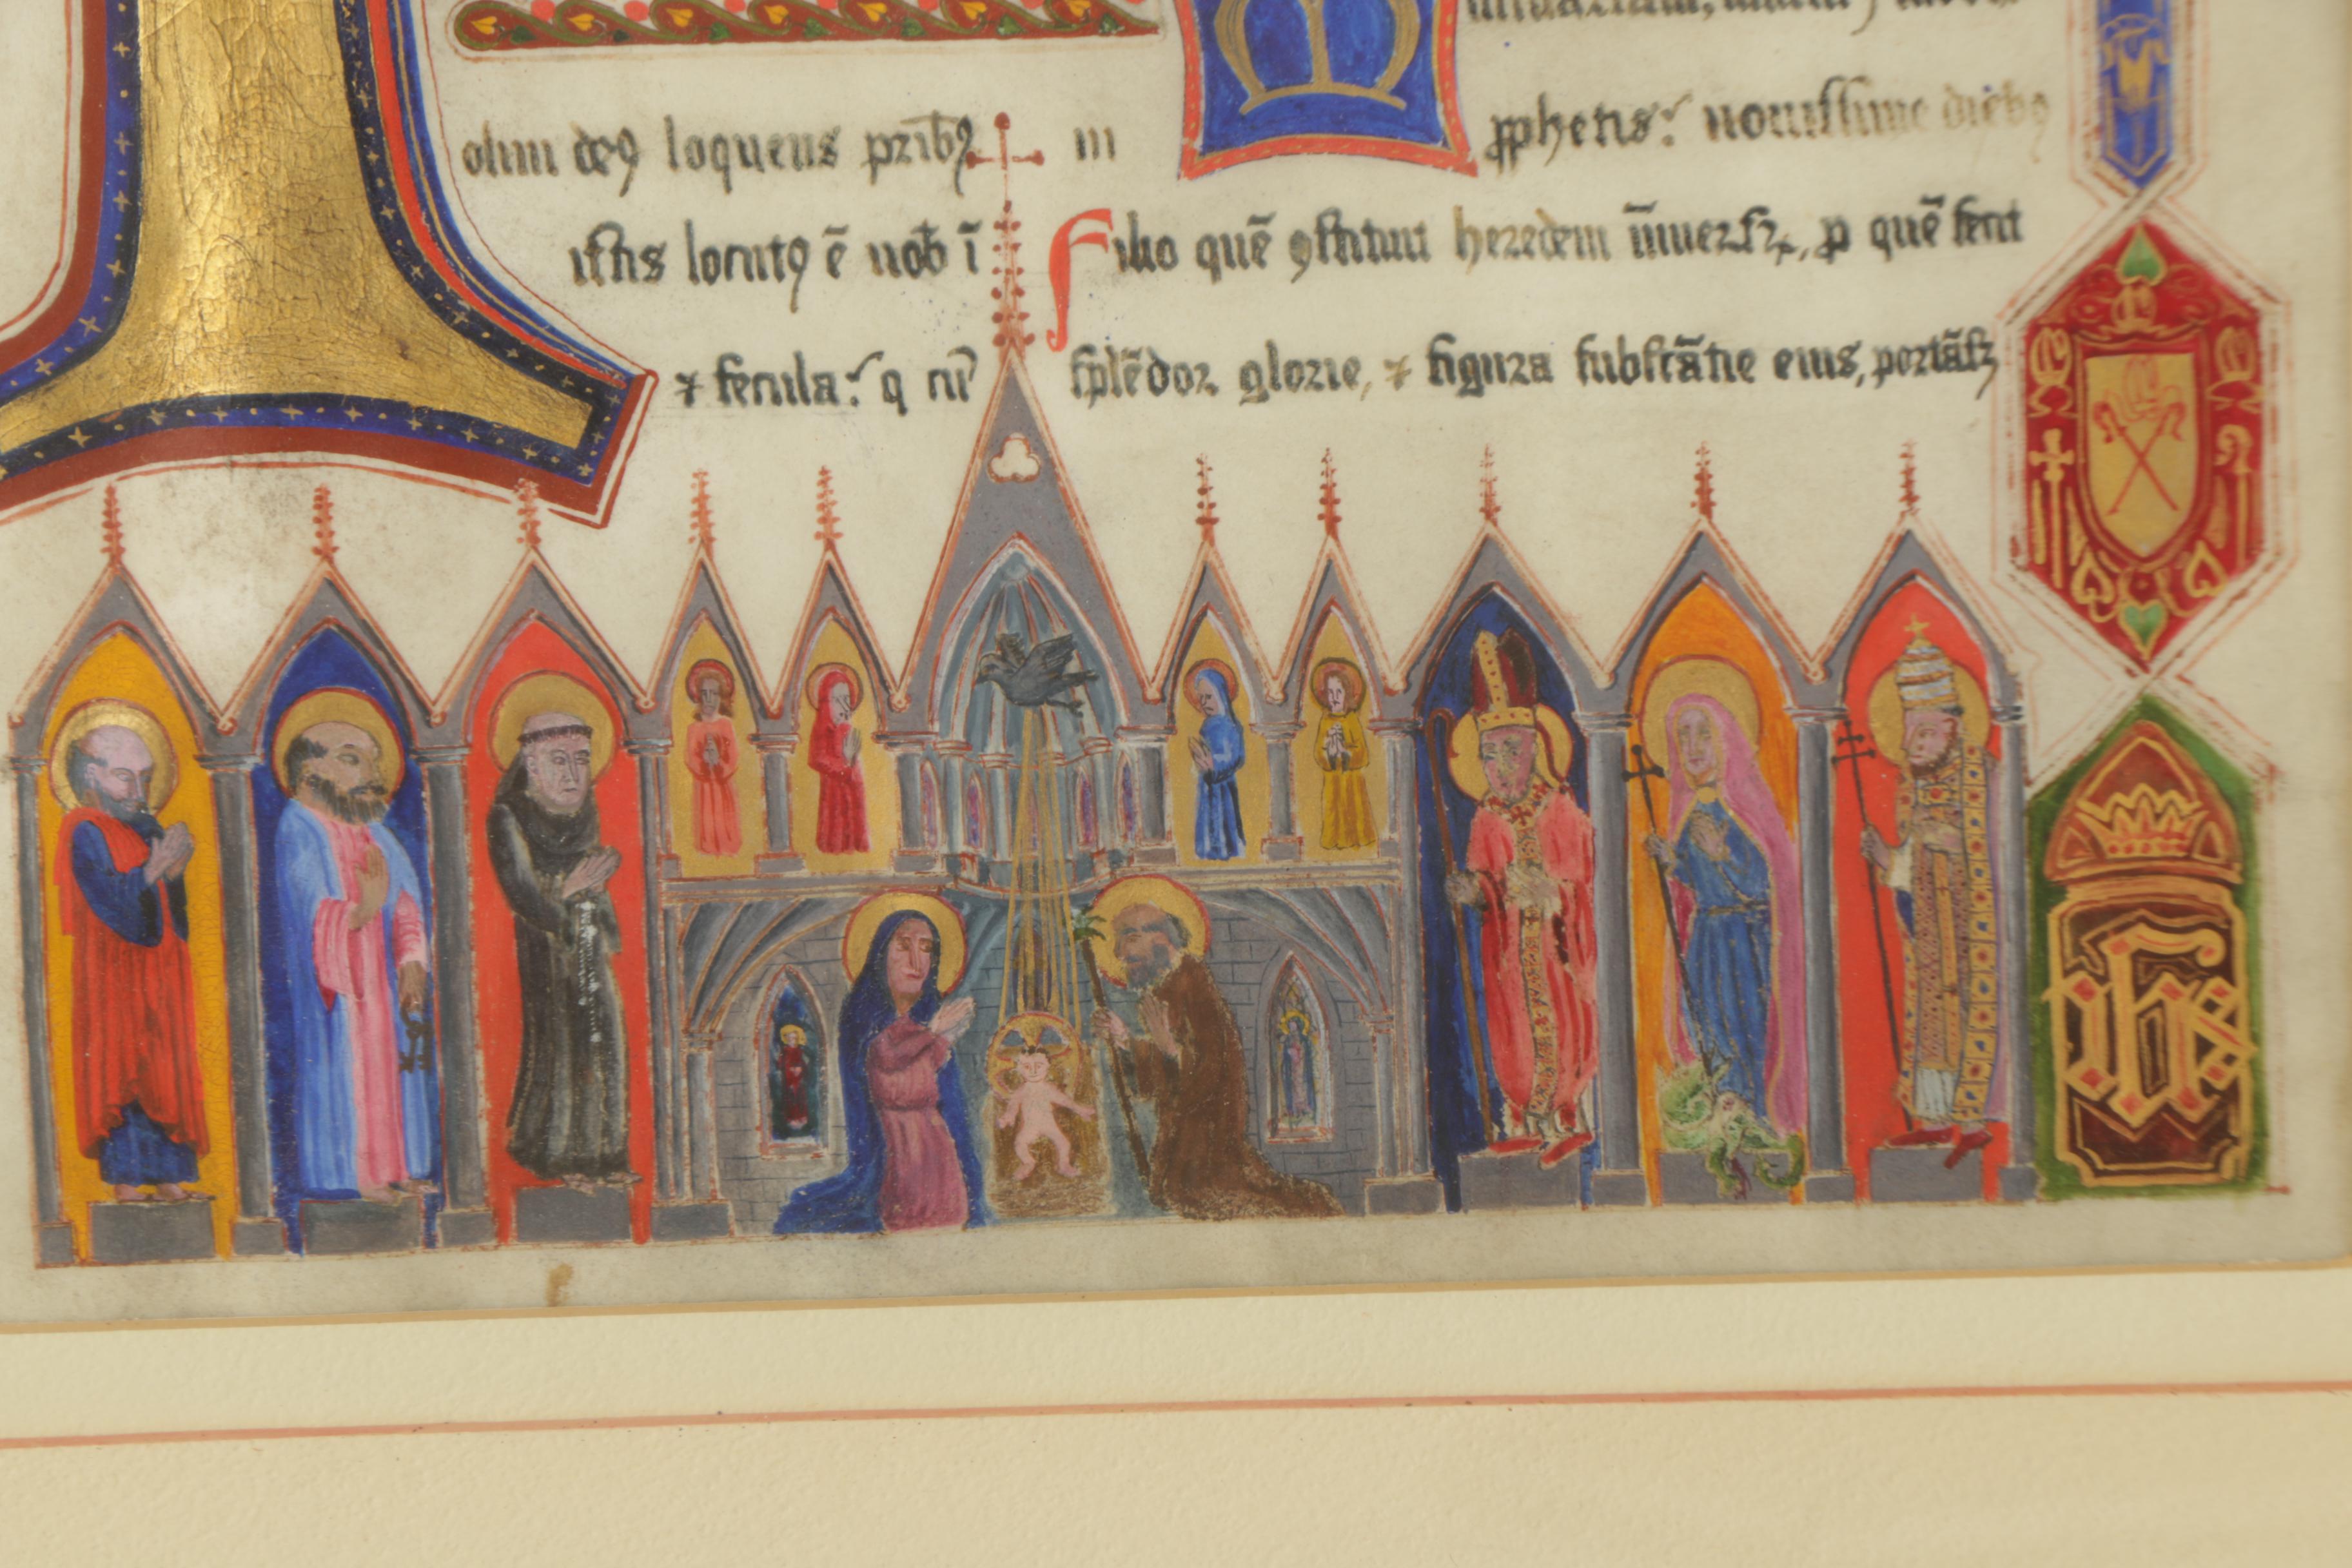 M
olim deꝯ loquens pr̄ibꝯ in ꝓphetis: nouissime diebꝯ
istis locutꝯ ē nob̄ ī Filio quē ꝯstituit heredem ūniuersoꝝ, ꝑ quē fecit
⁊ secula: q cū splēdor glorie, ⁊ figura substātie eius, portāſꝫ
ihs